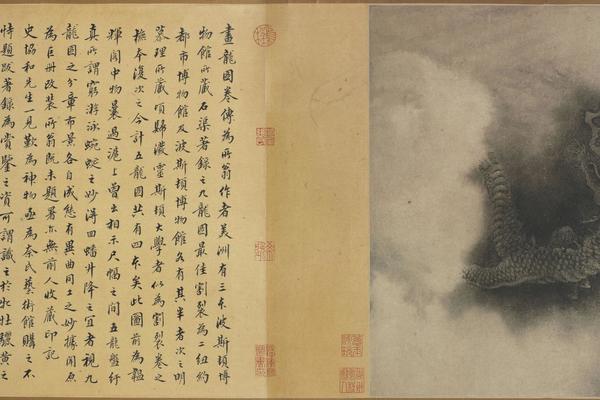 畫龍圖卷傳為所翁作者美洲有三本波斯頓博
物館所藏石渠著錄之九龍圖最佳割裂為二紐約
都市博物館及波斯頓博物館各有其半者次之明
慕理所藏項歸濃霊斯頓大學者似為割裂卷之
橅本復次之合計五龍圖共有四本矣此圖前為韞
輝閣中物曩過滬上曾出相示尺幅之間五龍盤紆
真所謂窮游泳蜿蜒之妙得回蟠升降之宜者視九
龍圖之分章布景各自成態有異曲同工之妙據聞原
為巨冊改裝所翁既未題署亦無前人收藏印記
史協和先生一見歎為神物亟為奈氏藝術館購之不
特題跋著錄為賞鑒之資可謂識之於牝牡驪黃之